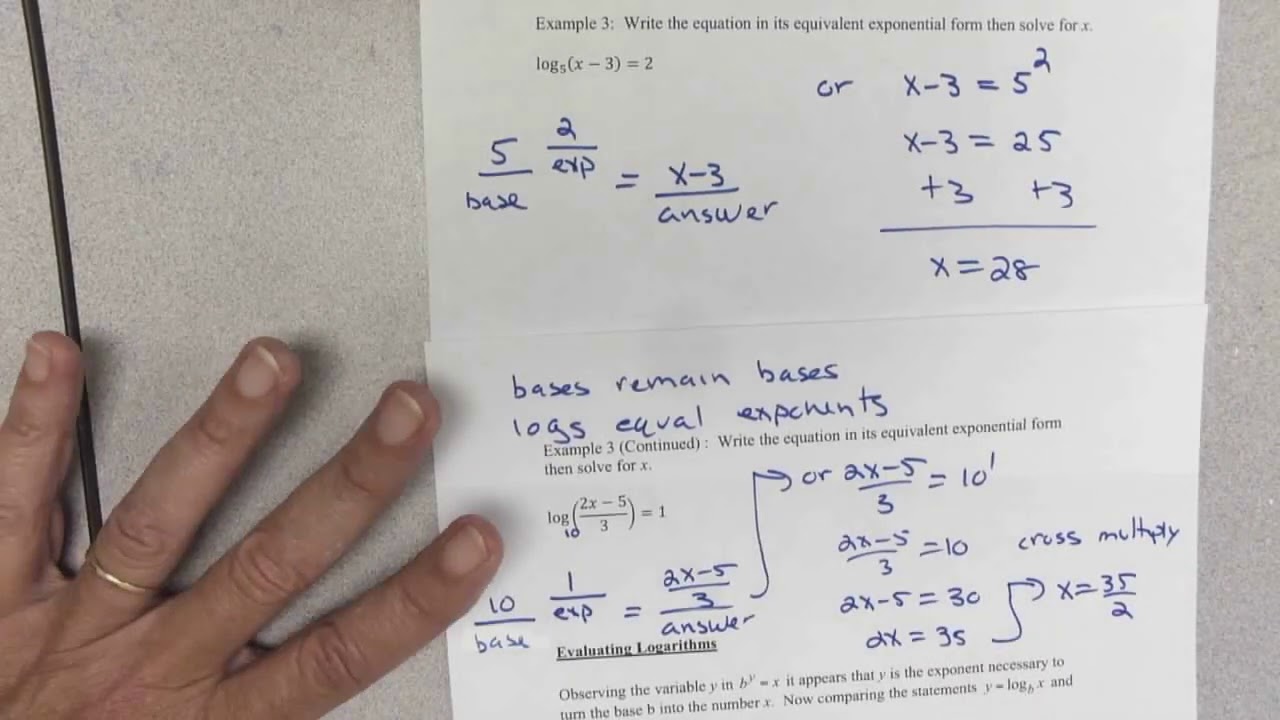 Example 3: Write the equation in its equivalent exponential form then solve for x.
log₅(x − 3) = 2
5 2 = x-3
base exp answer
or x-3 = 5²
x-3 = 25
+3 +3
x = 28
bases remain bases
logs equal exponents
Example 3 (Continued) : Write the equation in its equivalent exponential form
then solve for x.
log₁₀((2x − 5)/3) = 1
10 1 = (2x-5)/3
base exp answer
or (2x-5)/3 = 10¹
(2x-5)/3 = 10 cross multiply
2x-5 = 30
2x = 35
x = 35/2
Evaluating Logarithms
Observing the variable y in bʸ = x it appears that y is the exponent necessary to
turn the base b into the number x. Now comparing the statements y = log_b x and